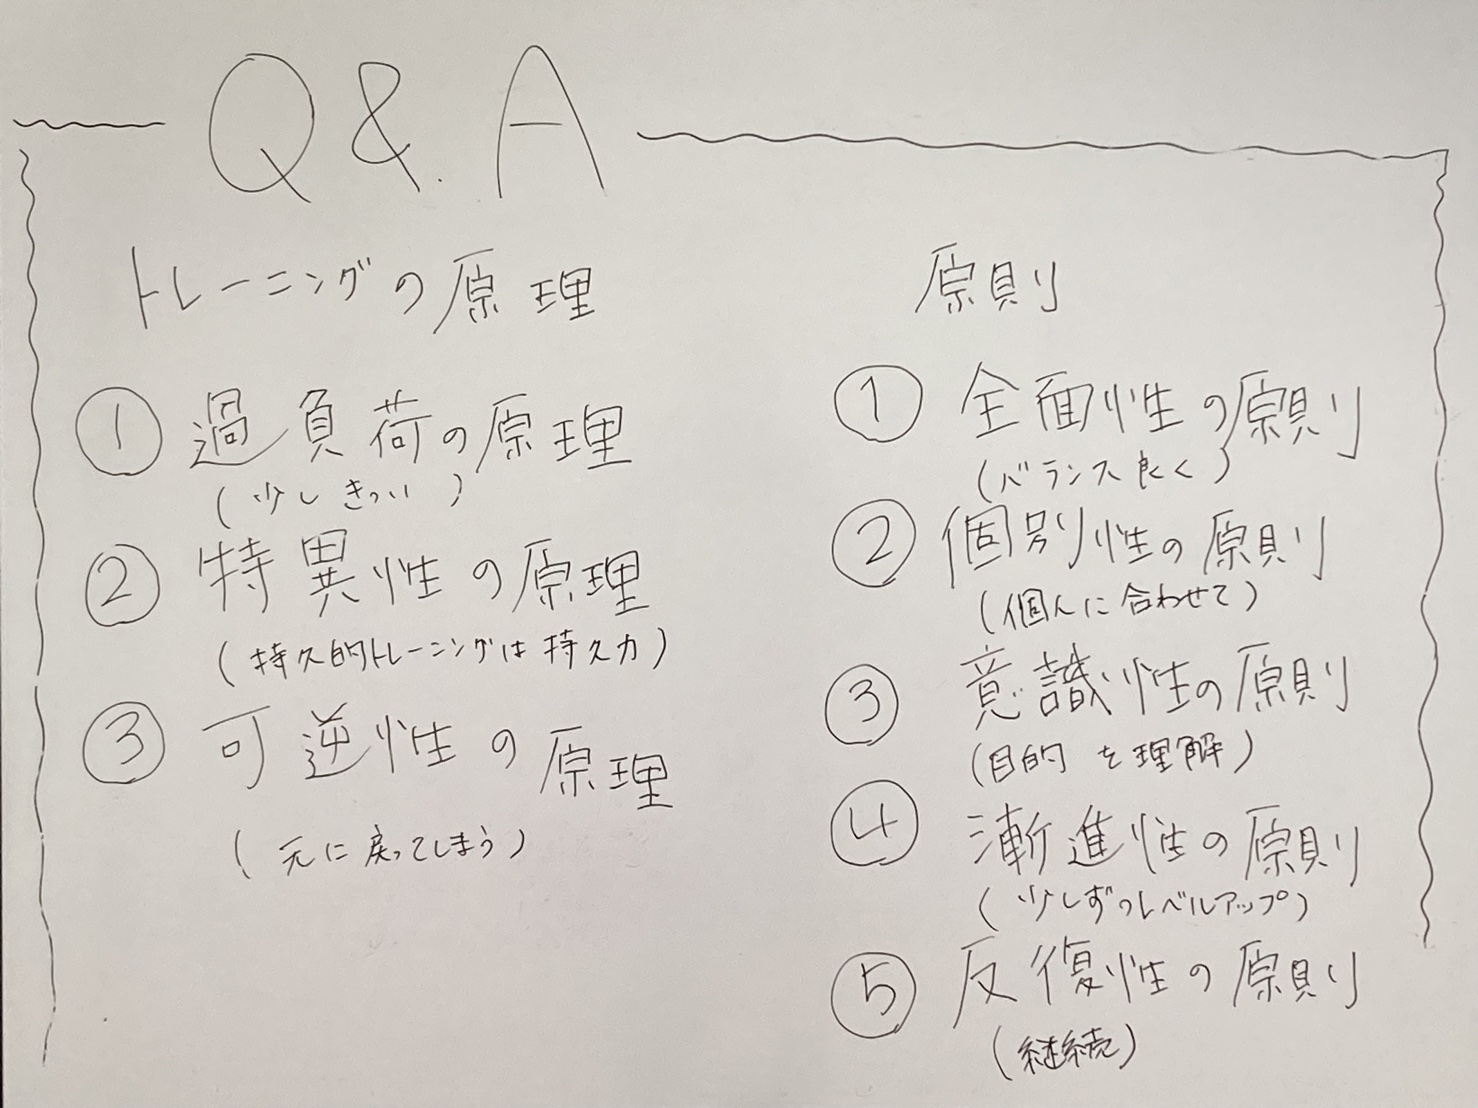 Q & A
トレーニングの原理
① 過負荷の原理
(少しきつい)
② 特異性の原理
(持久的トレーニングは持久力)
③ 可逆性の原理
(元に戻ってしまう)
原則
① 全面性の原則
(バランス良く)
② 個別性の原則
(個人に合わせて)
③ 意識性の原則
(目的を理解)
④ 漸進性の原則
(少しずつレベルアップ)
⑤ 反復性の原則
(継続)